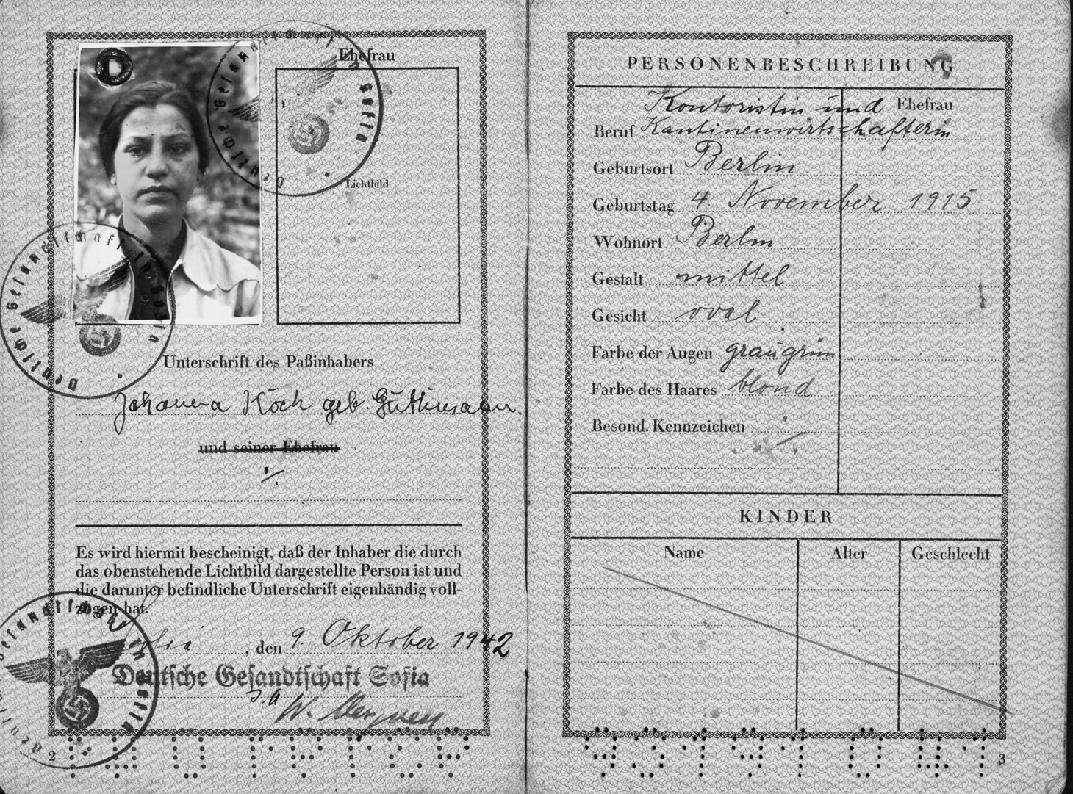 Ehefrau
Lichtbild
Unterschrift des Paßinhabers
Johanna Koch geb. Güthmann
und seiner Ehefrau
Es wird hiermit bescheinigt, daß der Inhaber die durch
das obenstehende Lichtbild dargestellte Person ist und
die darunter befindliche Unterschrift eigenhändig voll-
zogen hat.
Sofia, den 9. Oktober 1942
Deutsche Gesandtschaft Sofia
Deutsche Gesandtschaft Sofia
Deutsche Gesandtschaft Sofia
Deutsche Gesandtschaft Sofia
2
PERSONENBESCHREIBUNG
Kontoristin und Ehefrau
Beruf Kantinenwirtschafterin
Geburtsort Berlin
Geburtstag 4 November 1915
Wohnort Berlin
Gestalt mittel
Gesicht oval
Farbe der Augen graugrün
Farbe des Haares blond
Besond. Kennzeichen
KINDER
Name Alter Geschlecht
3